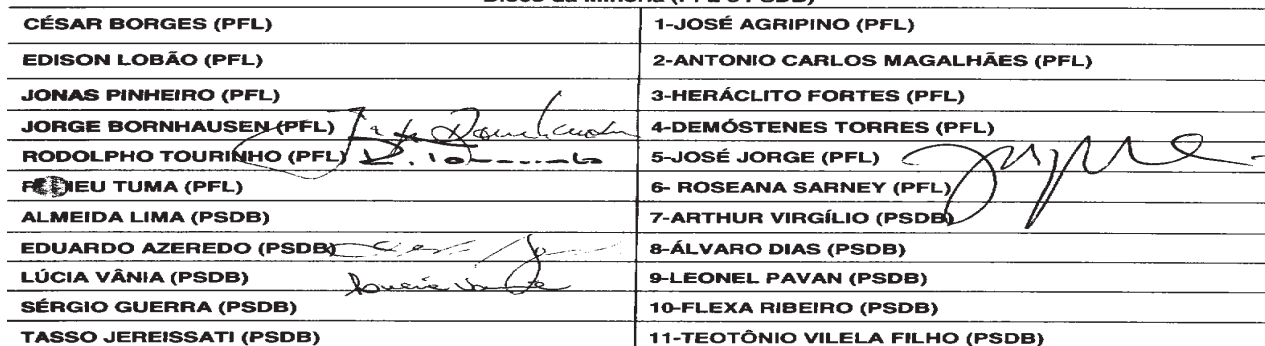 CÉSAR BORGES (PFL) 1-JOSÉ AGRIPINO (PFL)
EDISON LOBÃO (PFL) 2-ANTONIO CARLOS MAGALHÃES (PFL)
JONAS PINHEIRO (PFL) 3-HERÁCLITO FORTES (PFL)
JORGE BORNHAUSEN (PFL) 4-DEMÓSTENES TORRES (PFL)
RODOLPHO TOURINHO (PFL) R. Tourinho 5-JOSÉ JORGE (PFL)
(PFL) 6- ROSEANA SARNEY (PFL)
ALMEIDA LIMA (PSDB) 7-ARTHUR VIRGÍLIO (PSDB)
EDUARDO AZEREDO (PSDB) 8-ÁLVARO DIAS (PSDB)
LÚCIA VÂNIA (PSDB) Lúcia Vânia 9-LEONEL PAVAN (PSDB)
SÉRGIO GUERRA (PSDB) 10-FLEXA RIBEIRO (PSDB)
TASSO JEREISSATI (PSDB) 11-TEOTÔNIO VILELA FILHO (PSDB)